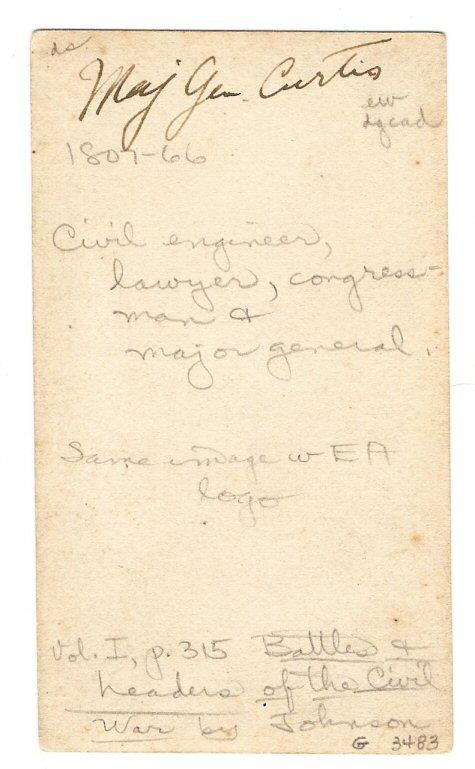 ds
Maj Gen Curtis
ew
1807-66
Civil engineer,
lawyer, congress-
man &
major general.
Same image w EA
logo
Vol. I, p. 315 Battles &
Leaders of the Civil
War by Johnson
G 3483